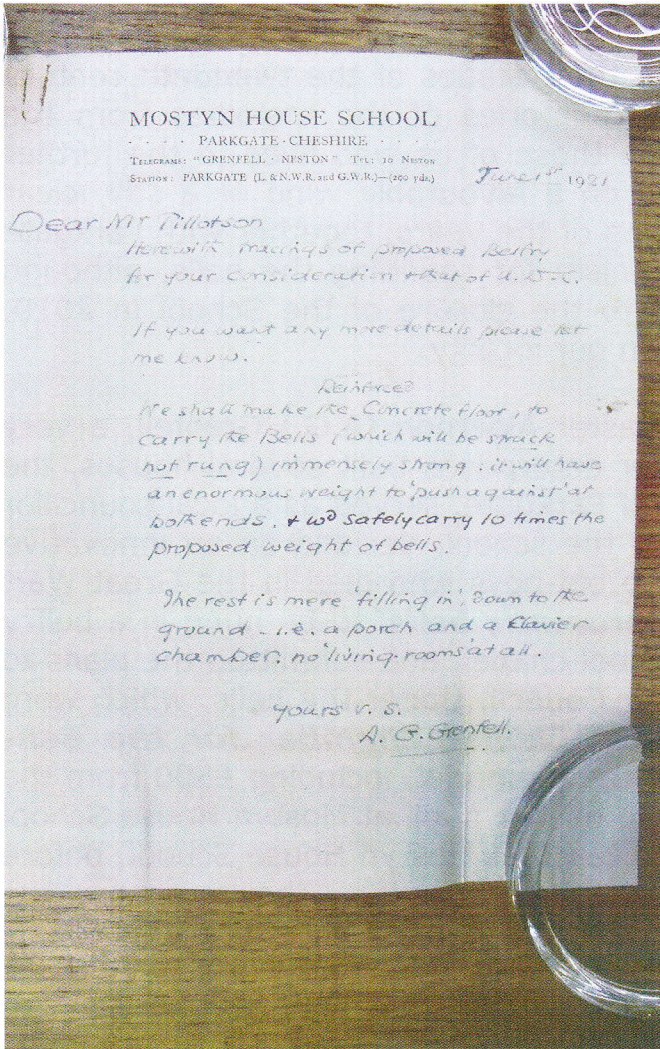 MOSTYN HOUSE SCHOOL
· · · · PARKGATE · CHESHIRE · · · ·
TELEGRAMS: "GRENFELL · NESTON" TEL: 10 NESTON
STATION: PARKGATE (L. & N.W.R. and G.W.R.)—(200 yds.)
June 1st 1921
Dear Mr Tillotson
Herewith tracings of proposed Belfry
for your consideration & that of U.D.C.
If you want any more details please let
me know.
Reinforced
We shall make the ‸ Concrete floor, to
carry the Bells (which will be struck
not rung) immensely strong: it will have
an enormous weight to 'push against' at
both ends, & wd safely carry 10 times the
proposed weight of bells.
The rest is mere 'filling in', down to the
ground - i.e. a porch and a Clavier
chamber; no 'living-rooms' at all.
yours v. s.
A. G. Grenfell.